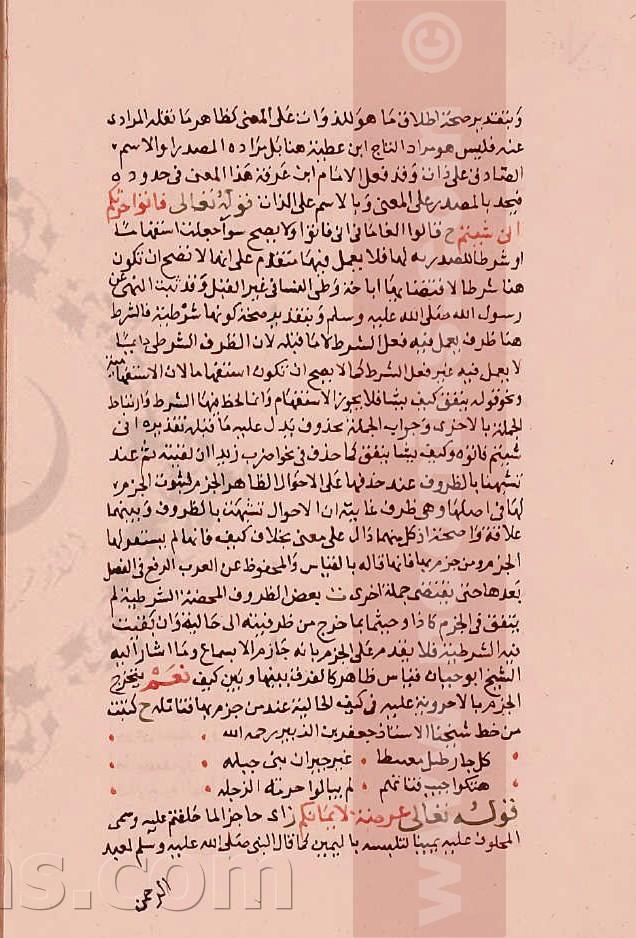 وبتقدير صحة اطلاق ما هو للذوات على المعنى كظاهر ما نقله المرادى
عنه فليس هو مراد التاج ابن عطية هنا بل مراده المصدر او الاسم
الصادق على ذات وقد فعل الامام ابن عرفة هذا المعنى فى حدوده
فيحد بالمصدر على المعنى وبالاسم على الذات قوله تعالى فاتوا حرثكم
انى شئتم ح قالوا العامل فى انى فاتوا ولا يصح سوآ جعلت استفهاما
او شرطا للصدرية لهما فلا يعمل فيهما متقدم على انها لا تصح ان تكون
هنا شرطا لاقتضائها اباحة وطى النسا فى غير القبل وقد ثبت النهى عن
رسول الله صلى الله عليه وسلم وبتقدير صحة كونها شرطية فالشرط
هنا ظرف يعمل فيه فعل الشرط لا ما قبله لان الظرف الشرطى دايما
لا يعمل فيه غير فعل الشرط كما لا يصح ان تكون استفهاما لان الاستفهامية
ونحو قوله ينفق كيف يشا فلا يجوز الاستفهام وانما لحظ فيها الشرط وارتباط
الجملة بالاخرى وجواب الجملة محذوف يدل عليه ما قبله تقديره انى
شيتم فاتوه وكيف يشا ينفق كما حذف فى نحو اضرب زيدا ان لقيته ثم عند
تشبيهنا بالظروف عند حذفها على الاحوال الظاهر الجزم لثبوت الجزم
لها فى اصلها وهى ظرف غايته ان الاحوال تشبهت بالظروف وبينهما
علاقة واضحة اذ كل منهما دال على معنى بخلاف كيف فانها لم يستقر لها
الجزم ومن جزم بها فانما قاله بالقياس والمحفوظ عن العرب الرفع فى الفعل
بعدها حتى يقتضى جملة اخرى ت بعض الظروف المحضة الشرطية لم
يتفق فى الجزم كاذا وحيثما بما خرج من ظرفيته الى حالية وان بقيت
فيه الشرطية فلا يقدم على الجزم بانه جازم الا بسماع وما اشار اليه
الشيخ ابو حيان قياس ظاهر كالفرقة بينها وبين كيف نعم يتخرج
الجزم بالاحروية عليه فى كيف للحالية عند من جزم بها فتامله ح كتبت
من خط شيخنا الاستاذ جعفر بن الزبير رحمه الله
كل جار ظل مغتبطا غير جيران بنى جبله
هتكوا جيب فتاتهم لم يبالوا حرمة الرجله
قوله تعالى عرضة لايمانكم ز اى حاجزا لما حلفتم عليه وسمى
المحلوف عليه يمينا لتلبسه باليمين كما قال النبى صلى الله عليه وسلم لعبد
الرحمن